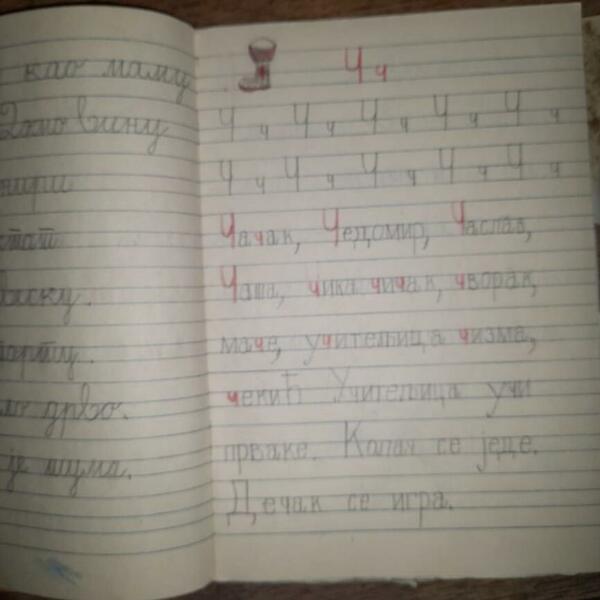 као маму
вину
дрво.
је шума.
Ч ч
Ч ч Ч ч Ч ч Ч ч Ч ч
Ч ч Ч ч Ч ч Ч ч Ч ч
Чачак, Чедомир, Часлав,
Чаша, чика чичак, чворак,
маче, учитељица чизма,
чекић Учитељица учи
прваке. Колач се једе.
Дечак се игра.